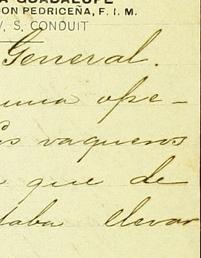 A GUADALUPE
ON PEDRICEÑA, F. I. M.
V. S. CONDUIT
General.
una ope-
os vaqueros
que de
taba llevar